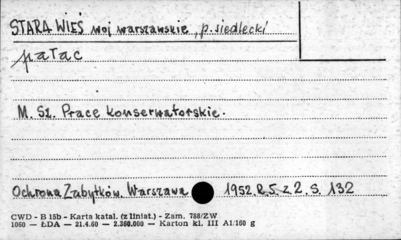 STARA WIEŚ woj warszawskie, p. siedlecki
pałac
M. Sz. Prace konserwatorskie.
Ochrona Zabytków. Warszawa 1952 R. 5 z 2. S. 132
CWD - B 15b - Karta katal. (z liniat.) - Zam. 788/ZW
1060 — ŁDA — 21.4.60 — 2.380.000 — Karton kl. III A1/160 g